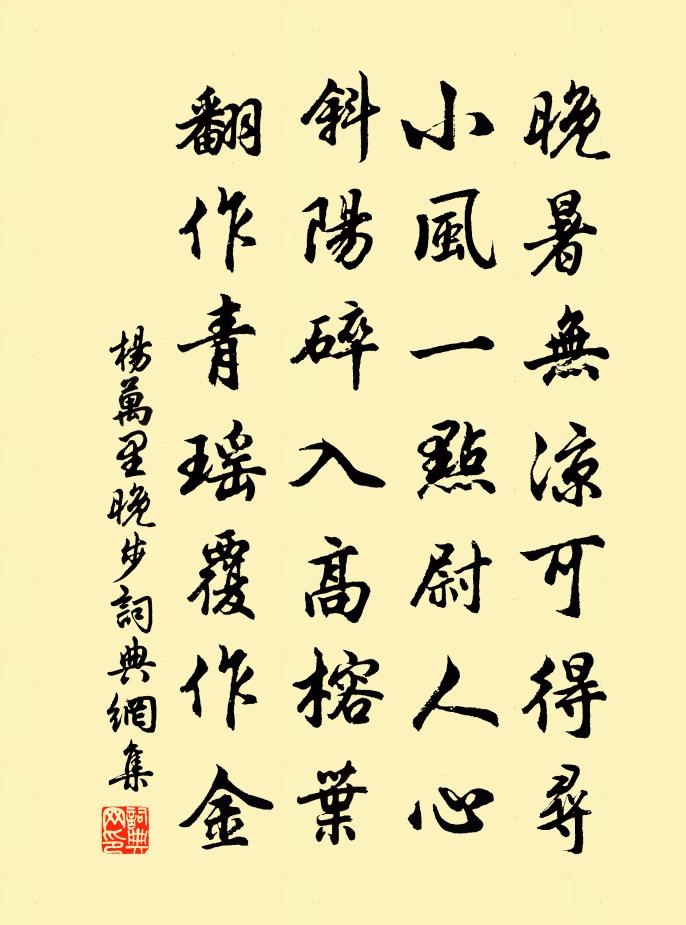 晚暑無涼可得尋
小風一點尉人心
斜陽碎入高榕葉
翻作青瑤覆作金
楊萬里晚步詞典網集
詞典
网印